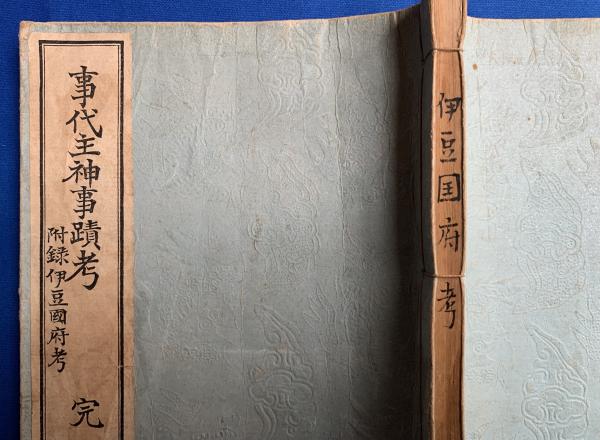 事代主神事蹟考
附録伊豆國府考
完
伊豆国府考